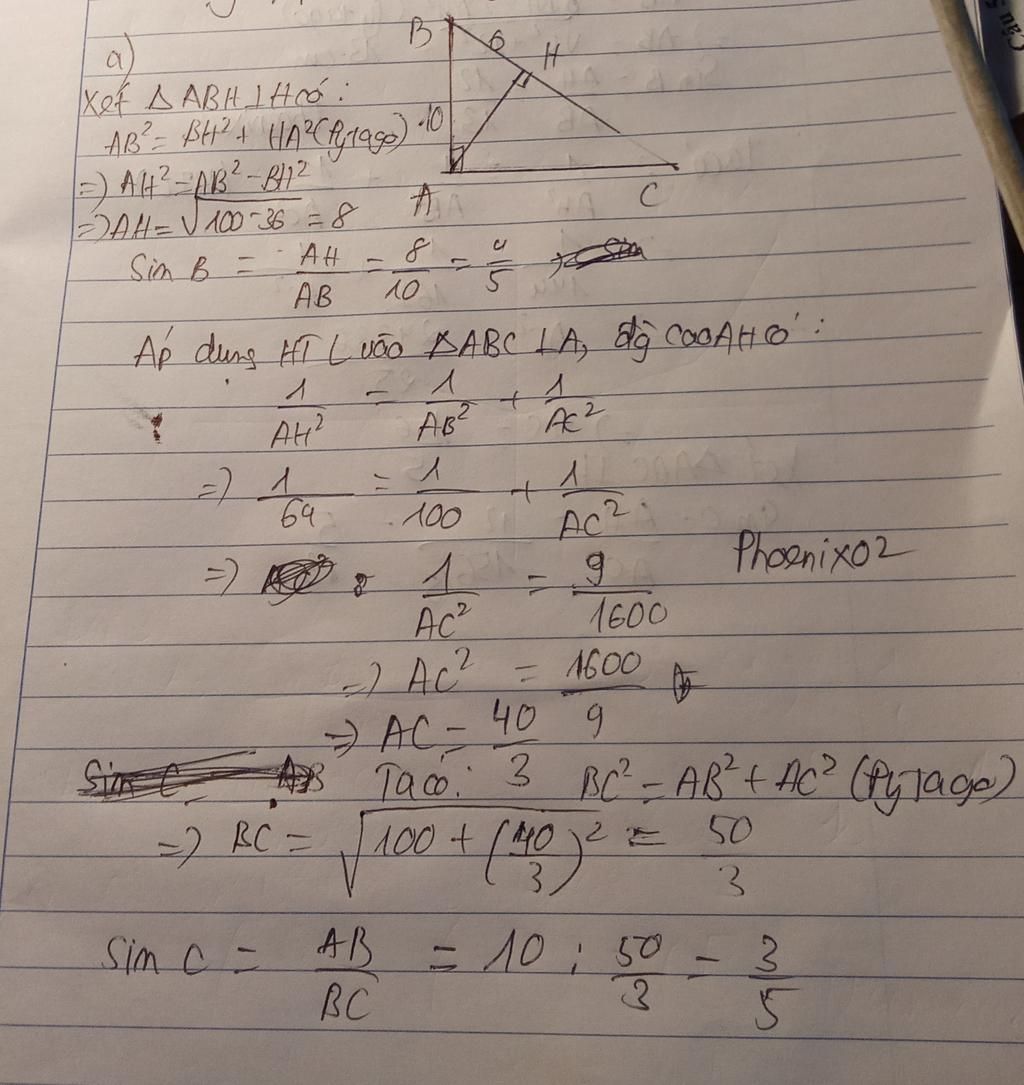 a)
B
6
H
10
A
C
Xét △ ABH ⊥ H có:
AB² = BH² + HA² (Pytago)
=) AH² = AB² - BH²
=) AH = √100-36 = 8
Sin B = AH/AB = 8/10 = 4/5
Áp dụng HTL vào △ABC ⊥A, đg cao AH có:
1/AH² = 1/AB² + 1/AC²
=) 1/64 = 1/100 + 1/AC²
=) 1/AC² = 9/1600
Phoenix02
=) AC² = 1600/9
=) AC = 40/3
Ta có: BC² = AB² + AC² (Pytago)
=) BC = √100 + (40/3)² = 50/3
Sin C = AB/BC = 10 : 50/3 = 3/5